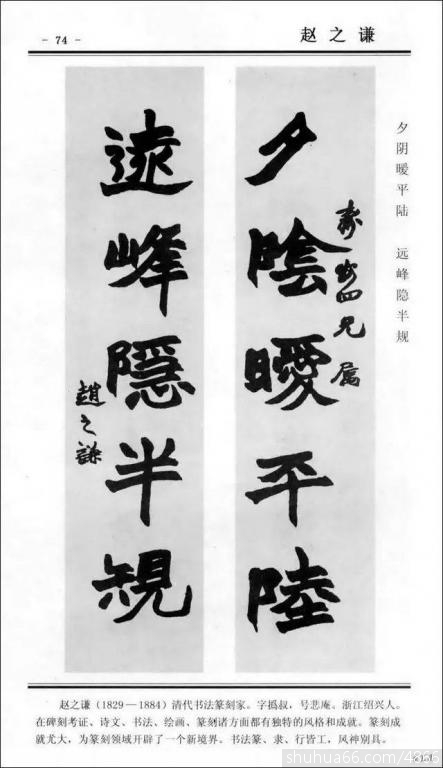 - 74 -
赵之谦
夕阴暧平陆 远峰隐半规
夕陰曖平陸
四兄属
遠峰隱半規
趙之謙
赵之谦（1829—1884）清代书法篆刻家。字㧑叔，号悲庵。浙江绍兴人。
在碑刻考证、诗文、书法、绘画、篆刻诸方面都有独特的风格和成就。篆刻成
就尤大，为篆刻领域开辟了一个新境界。书法篆、隶、行皆工，风神别具。
shuhua66.com/4866